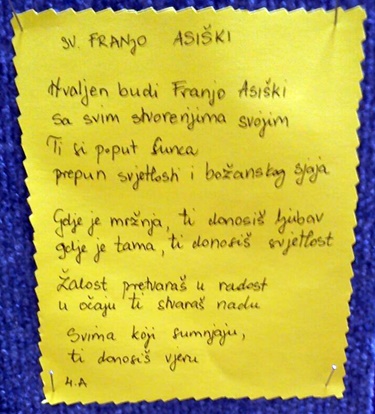 SV. FRANJO ASIŠKI
Hvaljen budi Franjo Asiški
sa svim stvorenjima svojim
Ti si poput Sunca
prepun svjetlosti i božanskog sjaja
Gdje je mržnja, ti donosiš ljubav
gdje je tama, ti donosiš svjetlost
Žalost pretvaraš u radost
u očaju ti stvaraš nadu
Svima koji sumnjaju,
ti donosiš vjeru
4.A